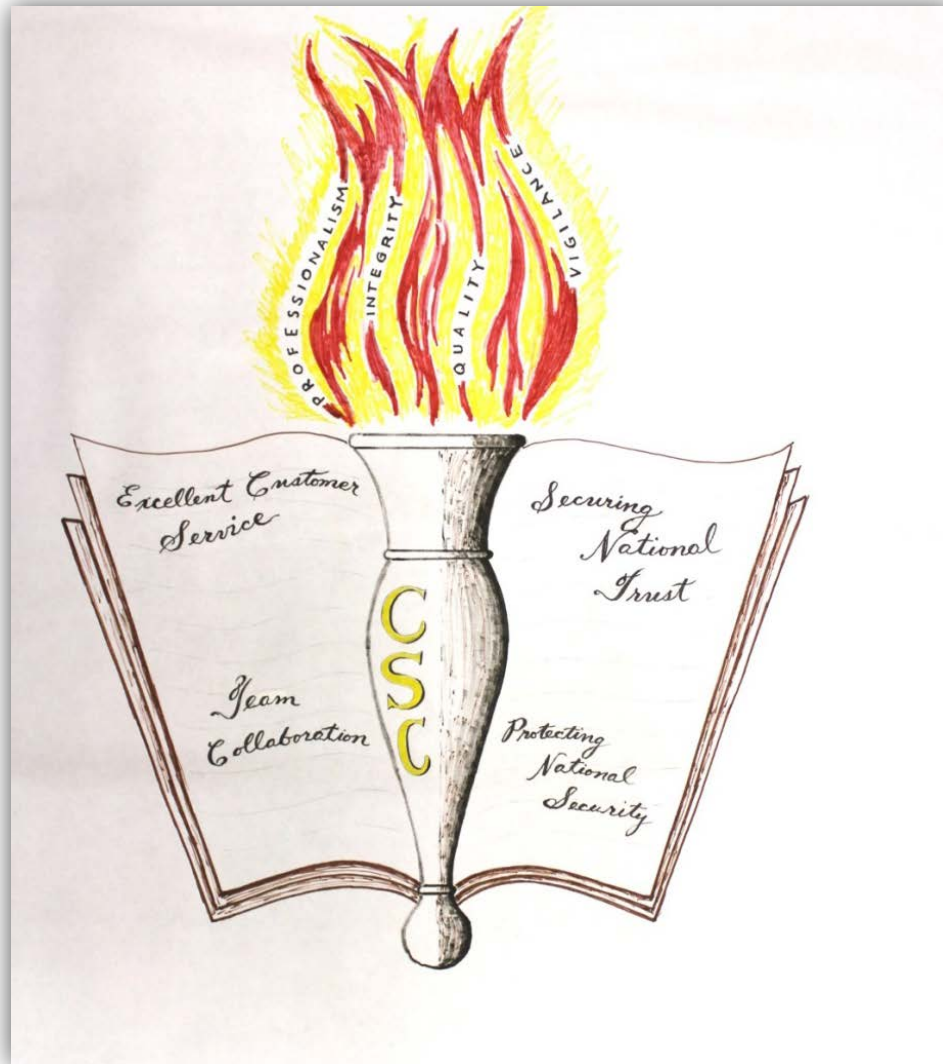 PROFESSIONALISM
INTEGRITY
QUALITY
VIGILANCE
Excellent Customer
Service
Team
Collaboration
CSC
Securing
National
Trust
Protecting
National
Security